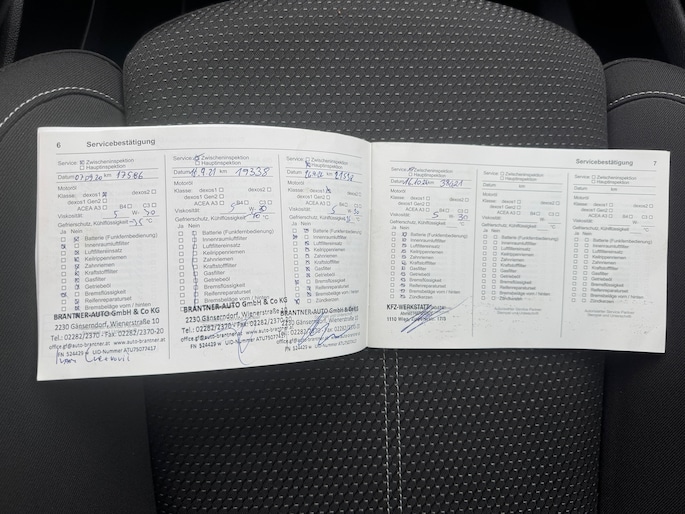 6 Servicebestätigung
Service: Zwischeninspektion
Hauptinspektion
Datum 07.09.20 km 17586
Motoröl
Klasse: dexos1 dexos2
dexos1 Gen2
ACEA A3 B4 C3
Viskosität: 5 W- 30
Gefrierschutz, Kühlflüssigkeit °C
Ja Nein
Batterie (Funkfernbedienung)
Innenraumluftfilter
Luftfiltereinsatz
Keilrippenriemen
Zahnriemen
Kraftstofffilter
Gasfilter
Getriebeöl
Bremsflüssigkeit
Reifenreparaturset
Bremsbeläge vorn / hinten
BRANTNER-AUTO GmbH & Co KG
2230 Gänserndorf, Wienerstraße 10
Tel.: 02282/2370 - Fax: 02282/2370-20
office.gf@auto-brantner.at www.auto-brantner.at
FN 524429 w UID-Nummer ATU75077417
Service: Zwischeninspektion
Hauptinspektion
Datum km 19338
Motoröl
Klasse: dexos1 dexos2
dexos1 Gen2
ACEA A3 B4 C3
Viskosität: 5 W- 30
Gefrierschutz, Kühlflüssigkeit °C
Ja Nein
Batterie (Funkfernbedienung)
Innenraumluftfilter
Luftfiltereinsatz
Keilrippenriemen
Zahnriemen
Kraftstofffilter
Gasfilter
Getriebeöl
Bremsflüssigkeit
Reifenreparaturset
Bremsbeläge vorn / hinten
BRANTNER-AUTO GmbH & Co KG
2230 Gänserndorf, Wienerstraße 10
Tel.: 02282/2370 - Fax: 02282/2370-20
office.gf@auto-brantner.at
FN 524429 w UID-Nummer ATU75077417
Service: Zwischeninspektion
Hauptinspektion
Datum km
Motoröl
Klasse: dexos1 dexos2
dexos1 Gen2
ACEA A3 B4 C3
Viskosität: 5 W- 30
Gefrierschutz, Kühlflüssigkeit °C
Ja Nein
Batterie (Funkfernbedienung)
Innenraumluftfilter
Luftfiltereinsatz
Keilrippenriemen
Zahnriemen
Kraftstofffilter
Gasfilter
Getriebeöl
Bremsflüssigkeit
Reifenreparaturset
Bremsbeläge vorn / hinten
BRANTNER-AUTO GmbH &
2230 Gänserndorf, Wienerstraße
Servicebestätigung 7
Service: Zwischeninspektion
Hauptinspektion
Datum km
Motoröl
Klasse: dexos1 dexos2
dexos1 Gen2
ACEA A3 B4 C3
Viskosität: 5 W- 30
Gefrierschutz, Kühlflüssigkeit °C
Ja Nein
Batterie (Funkfernbedienung)
Innenraumluftfilter
Luftfiltereinsatz
Keilrippenriemen
Zahnriemen
Kraftstofffilter
Gasfilter
Getriebeöl
Bremsflüssigkeit
Reifenreparaturset
Bremsbeläge vorn / hinten
Zündkerzen
KFZ-WERKSTATT
Service: Zwischeninspektion
Hauptinspektion
Datum km
Motoröl
Klasse: dexos1 dexos2
dexos1 Gen2
ACEA A3 B4 C3
Viskosität: W-
Gefrierschutz, Kühlflüssigkeit °C
Ja Nein
Batterie (Funkfernbedienung)
Innenraumluftfilter
Luftfiltereinsatz
Keilrippenriemen
Zahnriemen
Kraftstofffilter
Gasfilter
Getriebeöl
Bremsflüssigkeit
Reifenreparaturset
Bremsbeläge vorn / hinten
Zündkerzen
Autorisierter Service Partner
Stempel und Unterschrift
Service: Zwischeninspektion
Hauptinspektion
Datum km
Motoröl
Klasse: dexos1 dexos2
dexos1 Gen2
ACEA A3 B4 C3
Viskosität: W-
Gefrierschutz, Kühlflüssigkeit °C
Ja Nein
Batterie (Funkfernbedienung)
Innenraumluftfilter
Luftfiltereinsatz
Keilrippenriemen
Zahnriemen
Kraftstofffilter
Gasfilter
Getriebeöl
Bremsflüssigkeit
Reifenreparaturset
Bremsbeläge vorn / hinten
Zündkerzen
Autorisierter Service Partner
Stempel und Unterschrift